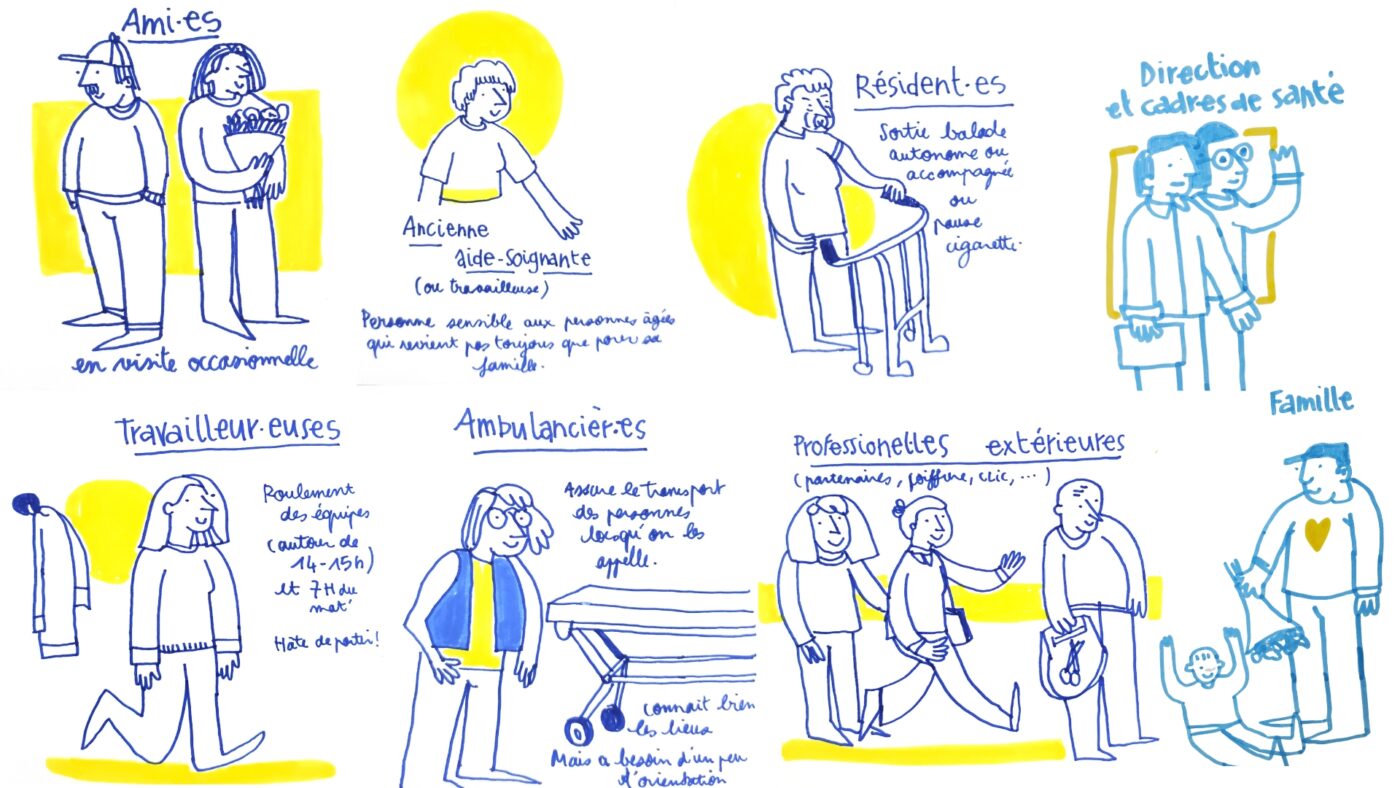 Ami·es
en visite occasionnelle
Ancienne
aide-soignante
(ou travailleuse)
Personne sensible aux personnes âgées
qui revient pas toujours que pour sa
famille.
Résident·es
Sortie balade
autonome ou
accompagnée
ou
pause
cigarette.
Direction
et cadres de santé
Travailleur·euses
Roulement
des équipes
(autour de
14-15h)
et 7H du
mat'
Hâte de partir!
Ambulancièr·es
Assure le transport
des personnes
lorsqu'on les
appelle.
connait bien
les lieux
Mais a besoin d'un peu
d'orientation
Professionelles extérieures
(partenaires, coiffure, clic, ...)
Famille